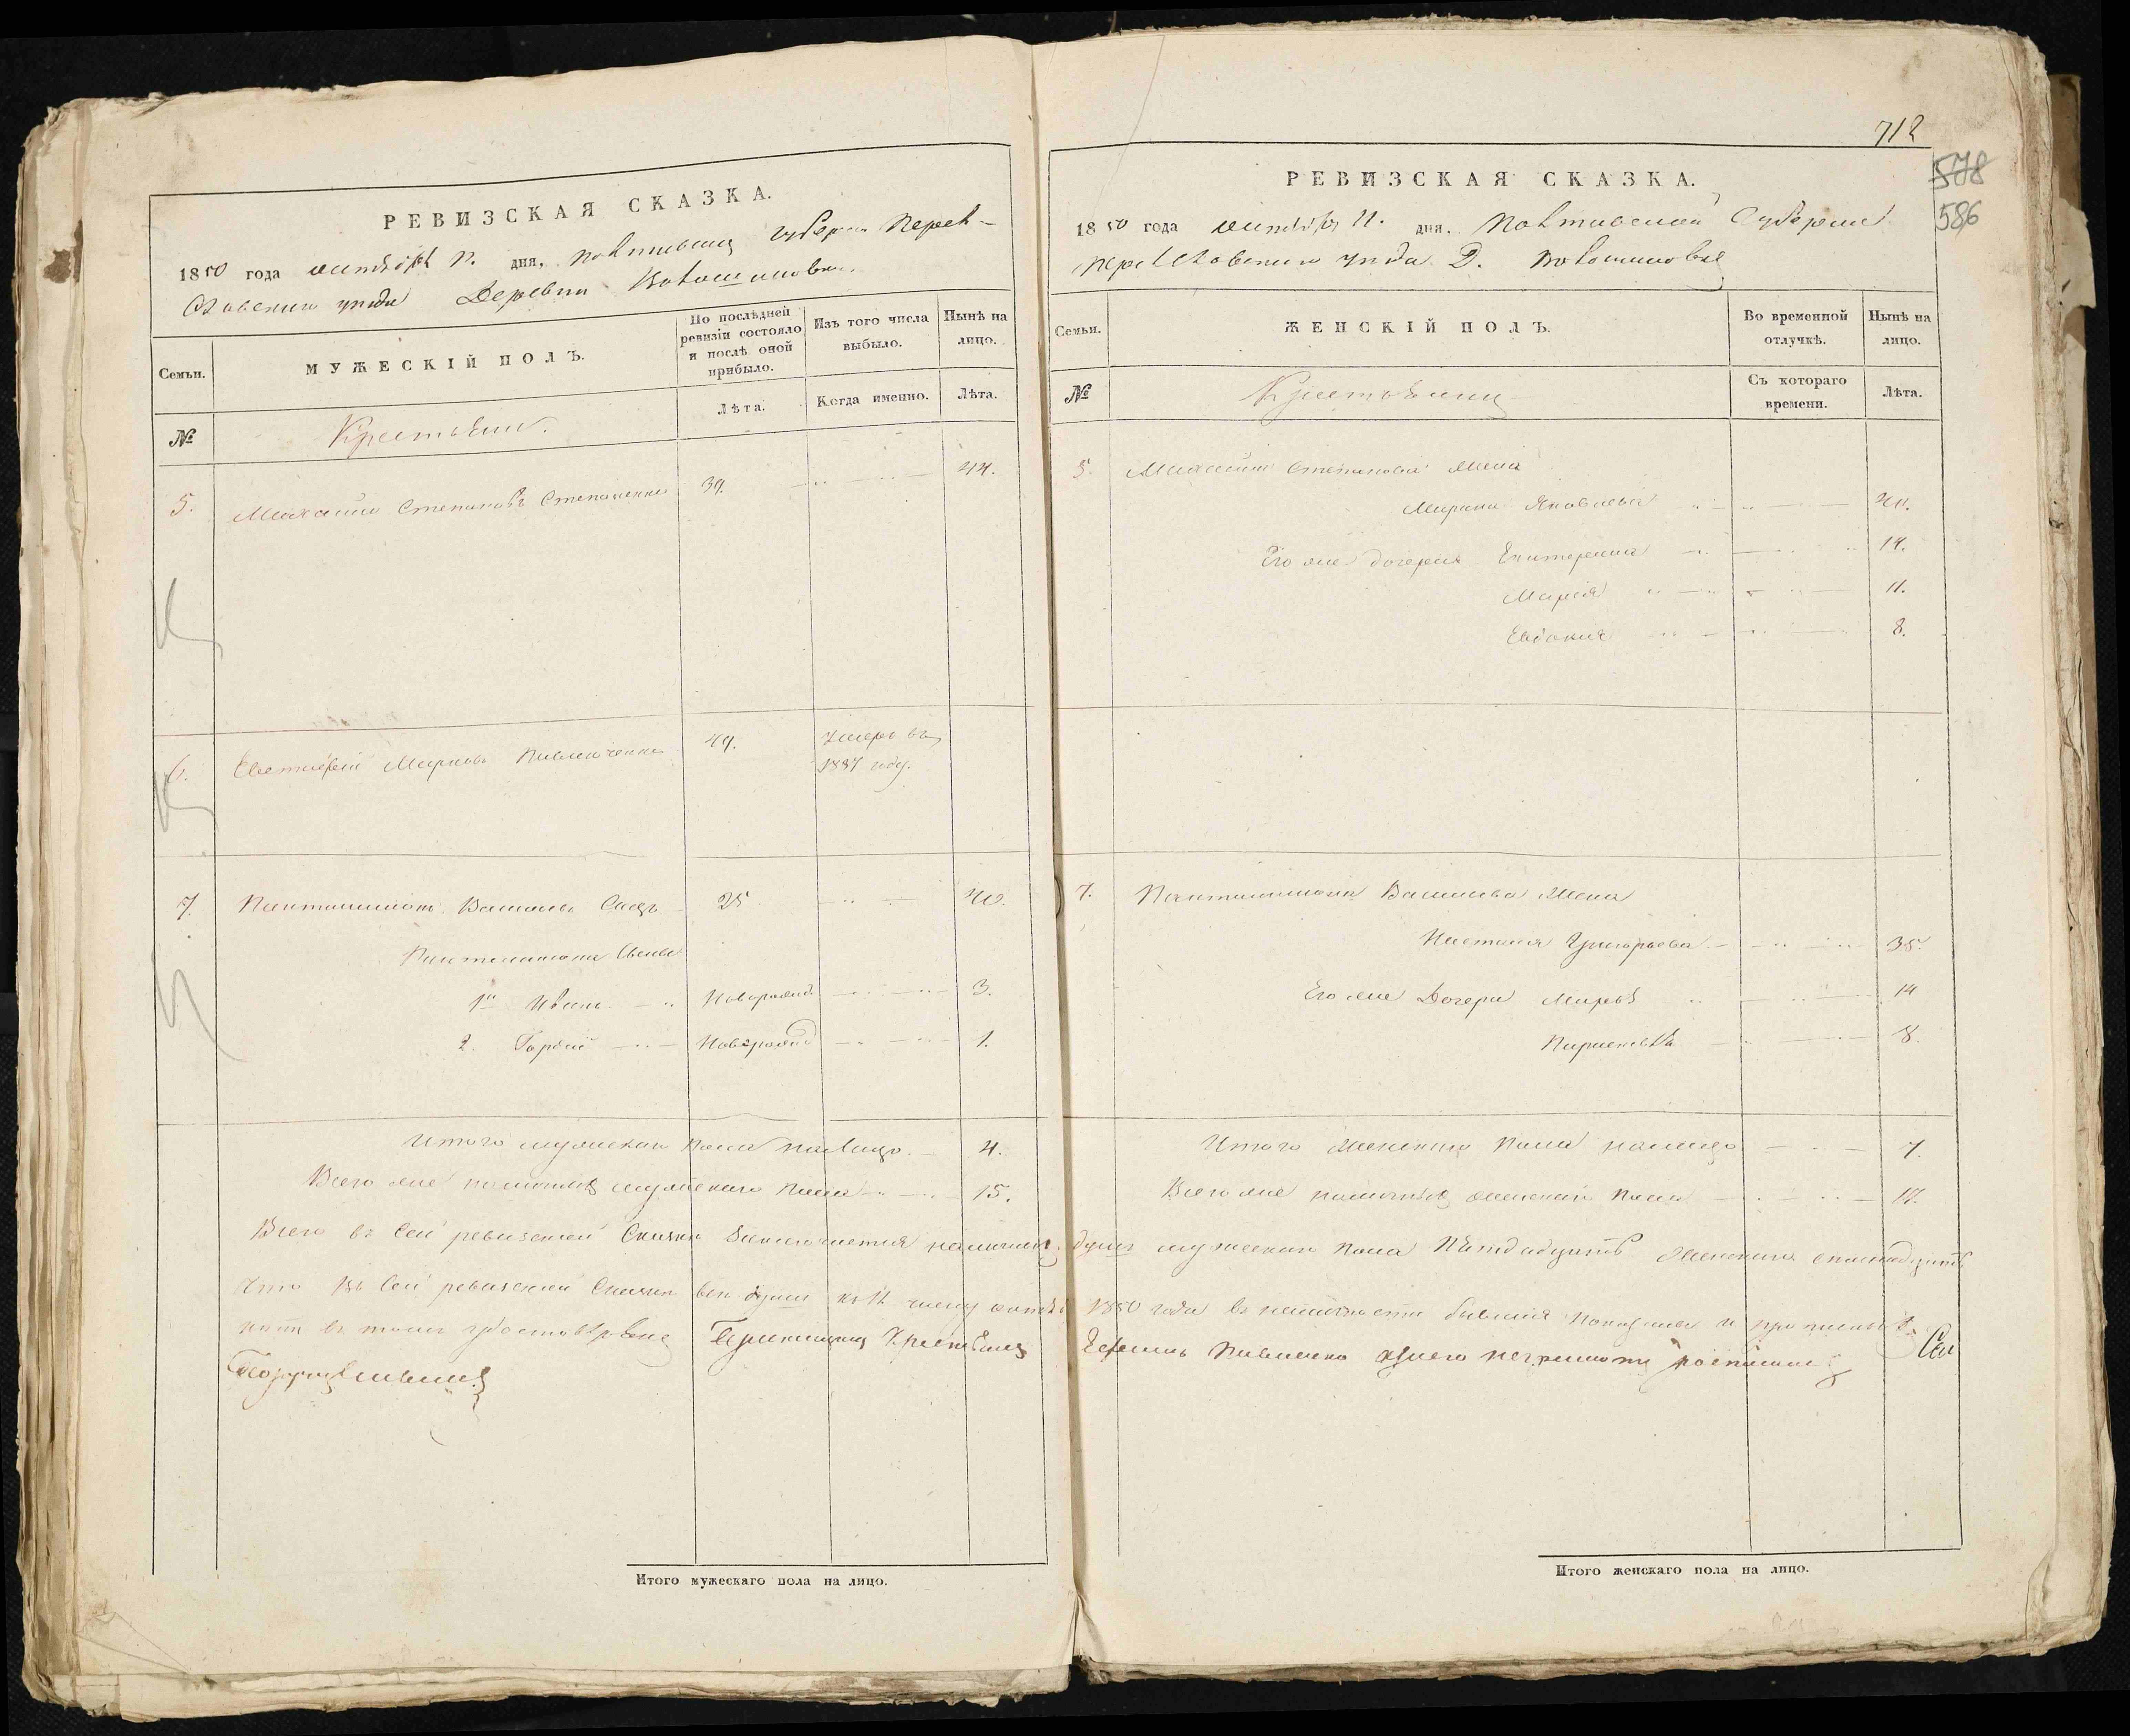 РЕВИЗСКАЯ СКАЗКА.
1850 года октября 11. дня, Полтавской Губернии Перея-
славского уезда Деревни Волошиновки.
Семьи.
МУЖЕСКІЙ ПОЛЪ.
По послѣдней ревизіи состояло и послѣ оной прибыло.
Изъ того числа выбыло.
Нынѣ на лицо.
№
Крестьяне.
Лѣта.
Когда именно.
Лѣта.
5. Михайло Степановъ Степаненко 39. 44.
6. Евстафій Марковъ Павлюченко 49. умеръ въ
1837 году.
7. Пантелимонъ Васильевъ Саецъ 25 40.
Пантелимона Сыновья
1й Иванъ Новорожд 3.
2. Гордей Новорожд 1.
Итого мужеска пола налицо. 4.
Всего же наличныхъ мужескаго пола 15.
Итого мужескаго пола на лицо.
712
578
586
РЕВИЗСКАЯ СКАЗКА.
1850 года октября 11. дня. Полтавской Губернии
Переяславского уезда Д. Волошиновки
Семьи.
ЖЕНСКІЙ ПОЛЪ.
Во временной отлучкѣ.
Нынѣ на лицо.
№
Крестьяне
Съ котораго времени.
Лѣта.
5. Михайла Степанова жена
Марина Яковлева 40.
Его же дочери Екатерина 14.
Марія 11.
Евдокия 8.
7. Пантелимона Васильева жена
Настасья Григорьева 35.
Его же Дочери Марья 14
Парасковья 8.
Итого женска пола налицо 7.
Всего же наличныхъ женскаго пола 17.
Всего въ сей ревизской Сказки заключается наличныхъ душъ мужеска пола Пятнадцать женскаго семнадцать
Что въ сей ревизской Сказки все души къ 11 числу октября 1850 года въ наличности бывшія показаны и прописныхъ
нетъ въ томъ удостоверяю крестьянинъ неграмотный росписался
Итого женскаго пола на лицо.